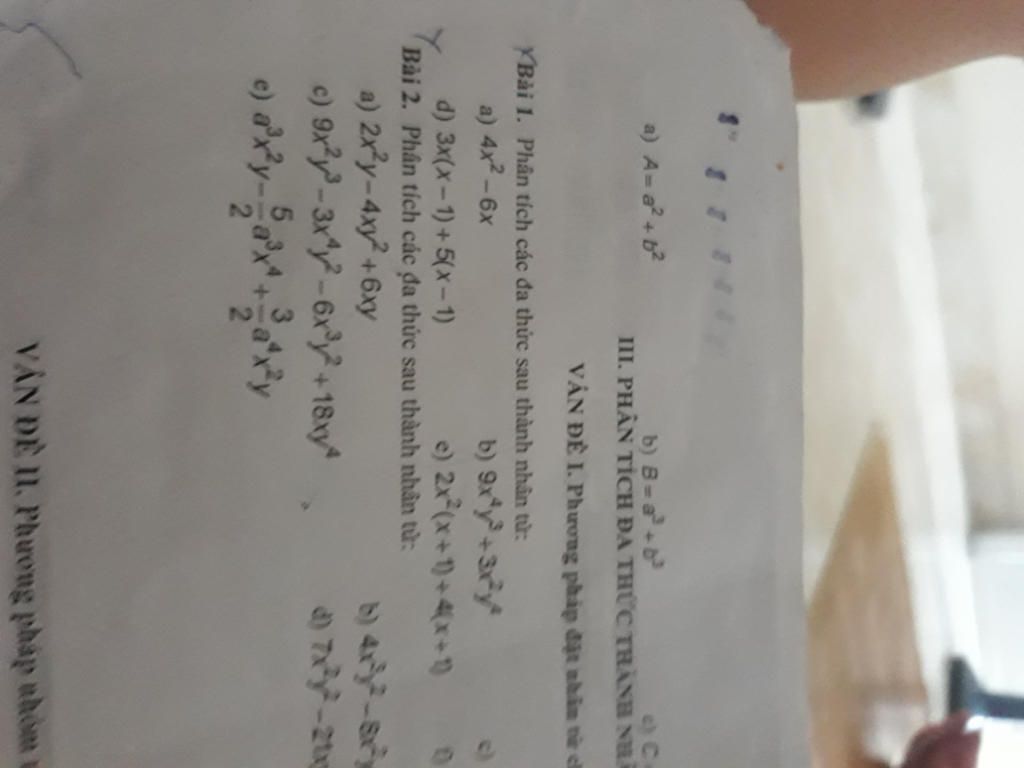 a) A = a² + b² b) B = a³ + b³ c) C
III. PHÂN TÍCH ĐA THỨC THÀNH
VẤN ĐỀ I. Phương pháp đặt nhân tử
Bài 1. Phân tích các đa thức sau thành nhân tử:
a) 4x² − 6x b) 9x⁴y³ + 3x²y⁴ c)
d) 3x(x − 1) + 5(x − 1) e) 2x²(x + 1) + 4(x + 1) f)
Bài 2. Phân tích các đa thức sau thành nhân tử:
a) 2x²y − 4xy² + 6xy b) 4x³y² − 8x²
c) 9x²y³ − 3x⁴y² − 6x³y² + 18xy⁴ d) 7x²y² − 21x
e) a³x²y − 5/2 a³x⁴ + 3/2 a⁴x²y
VẤN ĐỀ II. Phương pháp nhóm